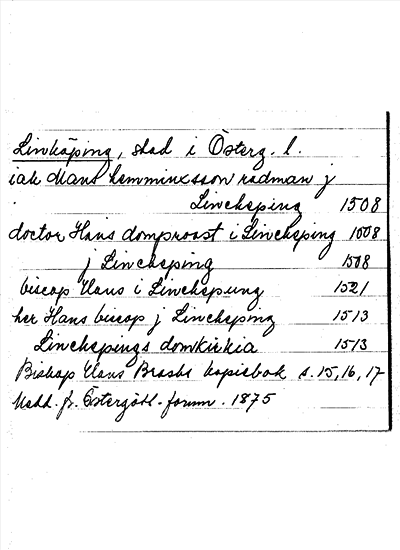 Linköping, stad i Österg. l.
iak Mans hemminxsson radman j
Linchepin̄g 1508
doctor Hans domproost i Lincheping 1508
j Lincheping 1508
biscop Hans i Linchepung 1521
her Hans biscop j Linchepng 1513
Linchepings domkirkia 1513
Biskop Hans Brasks kopiebok s. 15, 16, 17
Medd. fr. Östergötl. fornm. 1875